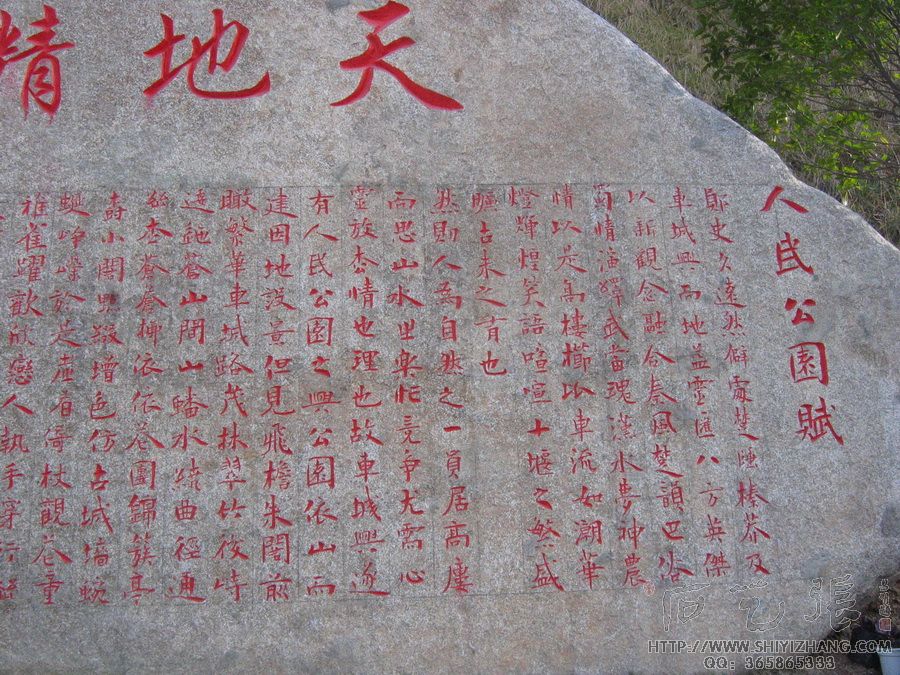 天地
人民公園賦
鄖史久遠然僻處楚陲榛莽及
車城興而地蓋靈匯八方英傑
以新觀念融合秦風楚韻巴俗
蜀情演繹武當瑰漢水夢神農
情以是高樓櫛比車流如潮華
燈輝煌笑語喧喧十堰之繁盛
曠古未之有也
然則人為自然之一員居高廔
而思山水樂忙競爭尤需心
靈放松情也理也故車城興遂
有人民公園之興公園依山而
建因地設景但見飛檐朱閣前
瞰繁華車城路茂林翠竹後峙
逶迤蒼山間山蟠水繞曲徑通
幽松蒼蒼柳依依花團錦簇亭
小閣點綴增色仿古城墻蜿
蜒崢嶸於是有倚杖觀花童
稚雀躍歡欣戀人執手穿行
HTTP://WWW.SHIYIZHANG.COM
QQ: 365865333